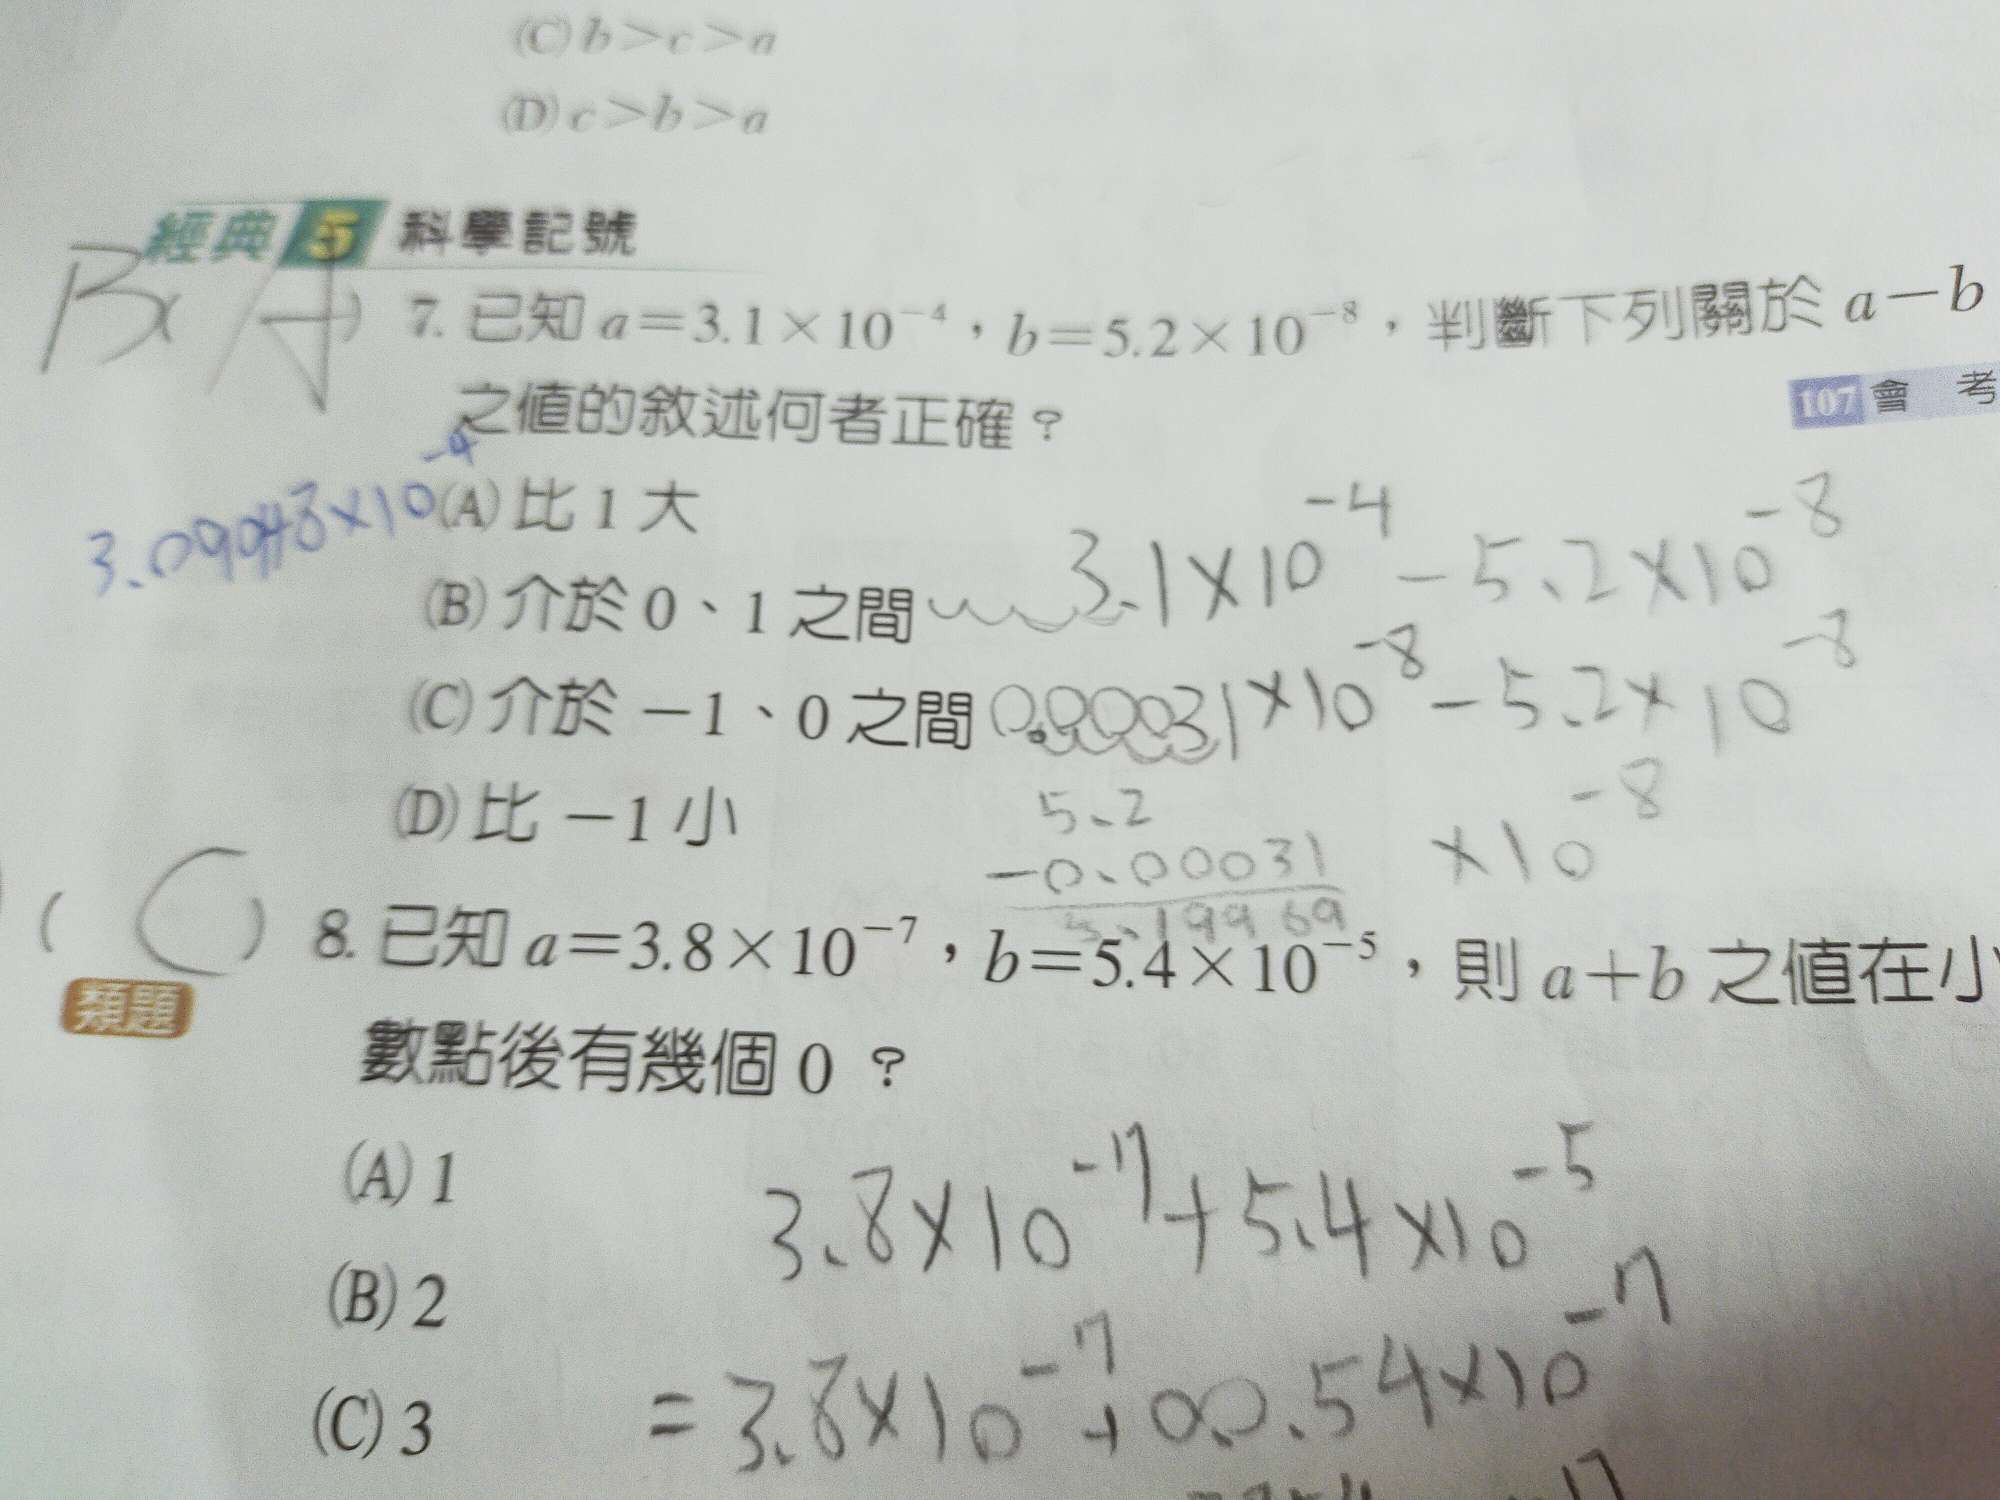 (C) b＞c＞a
(D) c＞b＞a
經典 5 科學記號
B
7. 已知 a＝3.1×10⁻⁴，b＝5.2×10⁻⁸，判斷下列關於 a－b
之值的敘述何者正確？
107 會 考
(A) 比 1 大
(B) 介於 0、1 之間
(C) 介於 －1、0 之間
(D) 比 －1 小
3.1×10⁻⁴－5.2×10⁻⁸
0.00031×10⁻⁸－5.2×10⁻⁸
5.2
－0.00031 ×10⁻⁸
5.19969
( C ) 8. 已知 a＝3.8×10⁻⁷，b＝5.4×10⁻⁵，則 a＋b 之值在小
類題
數點後有幾個 0 ？
(A) 1
(B) 2
(C) 3
3.8×10⁻⁷＋5.4×10⁻⁵
＝3.8×10⁻⁷＋00.54×10⁻⁷